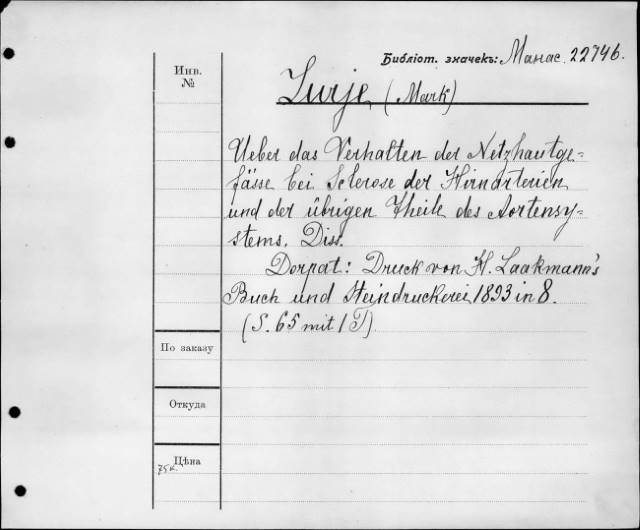 Библіот. значекъ: Манас. 22746.
Инв. №
Lurje (Mark)
Ueber das Verhalten der Netzhautge-
fässe bei Sclerose der Hirnarterien
und der übrigen Theile des Aortensy-
stems. Diss.
Dorpat: Druck von H. Laakmann's
Buch und Steindruckerei, 1893 in 8.
(S. 65 mit 1 T).
По заказу
Откуда
Цѣна
75 к.